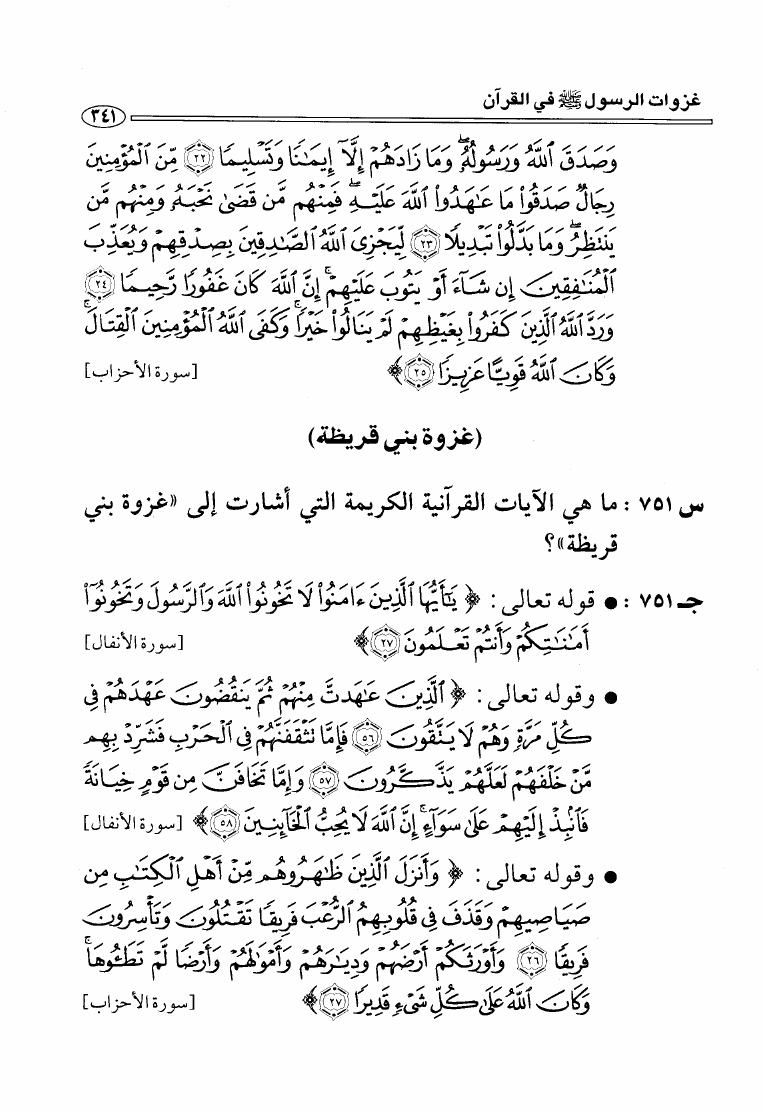 غزوات الرسول ﷺ في القرآن
٣٤١
وَصَدَقَ ٱللَّهُ وَرَسُولُهُۥۚ وَمَا زَادَهُمْ إِلَّآ إِيمَٰنًا وَتَسْلِيمًا ۝٢٢ مِّنَ ٱلْمُؤْمِنِينَ
رِجَالٌ صَدَقُوا۟ مَا عَٰهَدُوا۟ ٱللَّهَ عَلَيْهِۖ فَمِنْهُم مَّن قَضَىٰ نَحْبَهُۥ وَمِنْهُم مَّن
يَنتَظِرُۖ وَمَا بَدَّلُوا۟ تَبْدِيلًا ۝٢٣ لِّيَجْزِىَ ٱللَّهُ ٱلصَّٰدِقِينَ بِصِدْقِهِمْ وَيُعَذِّبَ
ٱلْمُنَٰفِقِينَ إِن شَآءَ أَوْ يَتُوبَ عَلَيْهِمْۚ إِنَّ ٱللَّهَ كَانَ غَفُورًا رَّحِيمًا ۝٢٤
وَرَدَّ ٱللَّهُ ٱلَّذِينَ كَفَرُوا۟ بِغَيْظِهِمْ لَمْ يَنَالُوا۟ خَيْرًاۚ وَكَفَى ٱللَّهُ ٱلْمُؤْمِنِينَ ٱلْقِتَالَۚ
وَكَانَ ٱللَّهُ قَوِيًّا عَزِيزًا ۝٢٥ ﴾ [سورة الأحزاب]
(غزوة بني قريظة)
س ٧٥١ : ما هي الآيات القرآنية الكريمة التي أشارت إلى «غزوة بني
قريظة»؟
جـ ٧٥١ : ● قوله تعالى : ﴿ يَٰٓأَيُّهَا ٱلَّذِينَ ءَامَنُوا۟ لَا تَخُونُوا۟ ٱللَّهَ وَٱلرَّسُولَ وَتَخُونُوٓا۟
أَمَٰنَٰتِكُمْ وَأَنتُمْ تَعْلَمُونَ ۝٢٧ ﴾ [سورة الأنفال]
● وقوله تعالى : ﴿ ٱلَّذِينَ عَٰهَدتَّ مِنْهُمْ ثُمَّ يَنقُضُونَ عَهْدَهُمْ فِى
كُلِّ مَرَّةٍ وَهُمْ لَا يَتَّقُونَ ۝٥٦ فَإِمَّا تَثْقَفَنَّهُمْ فِى ٱلْحَرْبِ فَشَرِّدْ بِهِم
مَّنْ خَلْفَهُمْ لَعَلَّهُمْ يَذَّكَّرُونَ ۝٥٧ وَإِمَّا تَخَافَنَّ مِن قَوْمٍ خِيَانَةً
فَٱنۢبِذْ إِلَيْهِمْ عَلَىٰ سَوَآءٍۚ إِنَّ ٱللَّهَ لَا يُحِبُّ ٱلْخَآئِنِينَ ۝٥٨ ﴾ [سورة الأنفال]
● وقوله تعالى : ﴿ وَأَنزَلَ ٱلَّذِينَ ظَٰهَرُوهُم مِّنْ أَهْلِ ٱلْكِتَٰبِ مِن
صَيَاصِيهِمْ وَقَذَفَ فِى قُلُوبِهِمُ ٱلرُّعْبَ فَرِيقًا تَقْتُلُونَ وَتَأْسِرُونَ
فَرِيقًا ۝٢٦ وَأَوْرَثَكُمْ أَرْضَهُمْ وَدِيَٰرَهُمْ وَأَمْوَٰلَهُمْ وَأَرْضًا لَّمْ تَطَـُٔوهَاۚ
وَكَانَ ٱللَّهُ عَلَىٰ كُلِّ شَىْءٍ قَدِيرًا ۝٢٧ ﴾ [سورة الأحزاب]